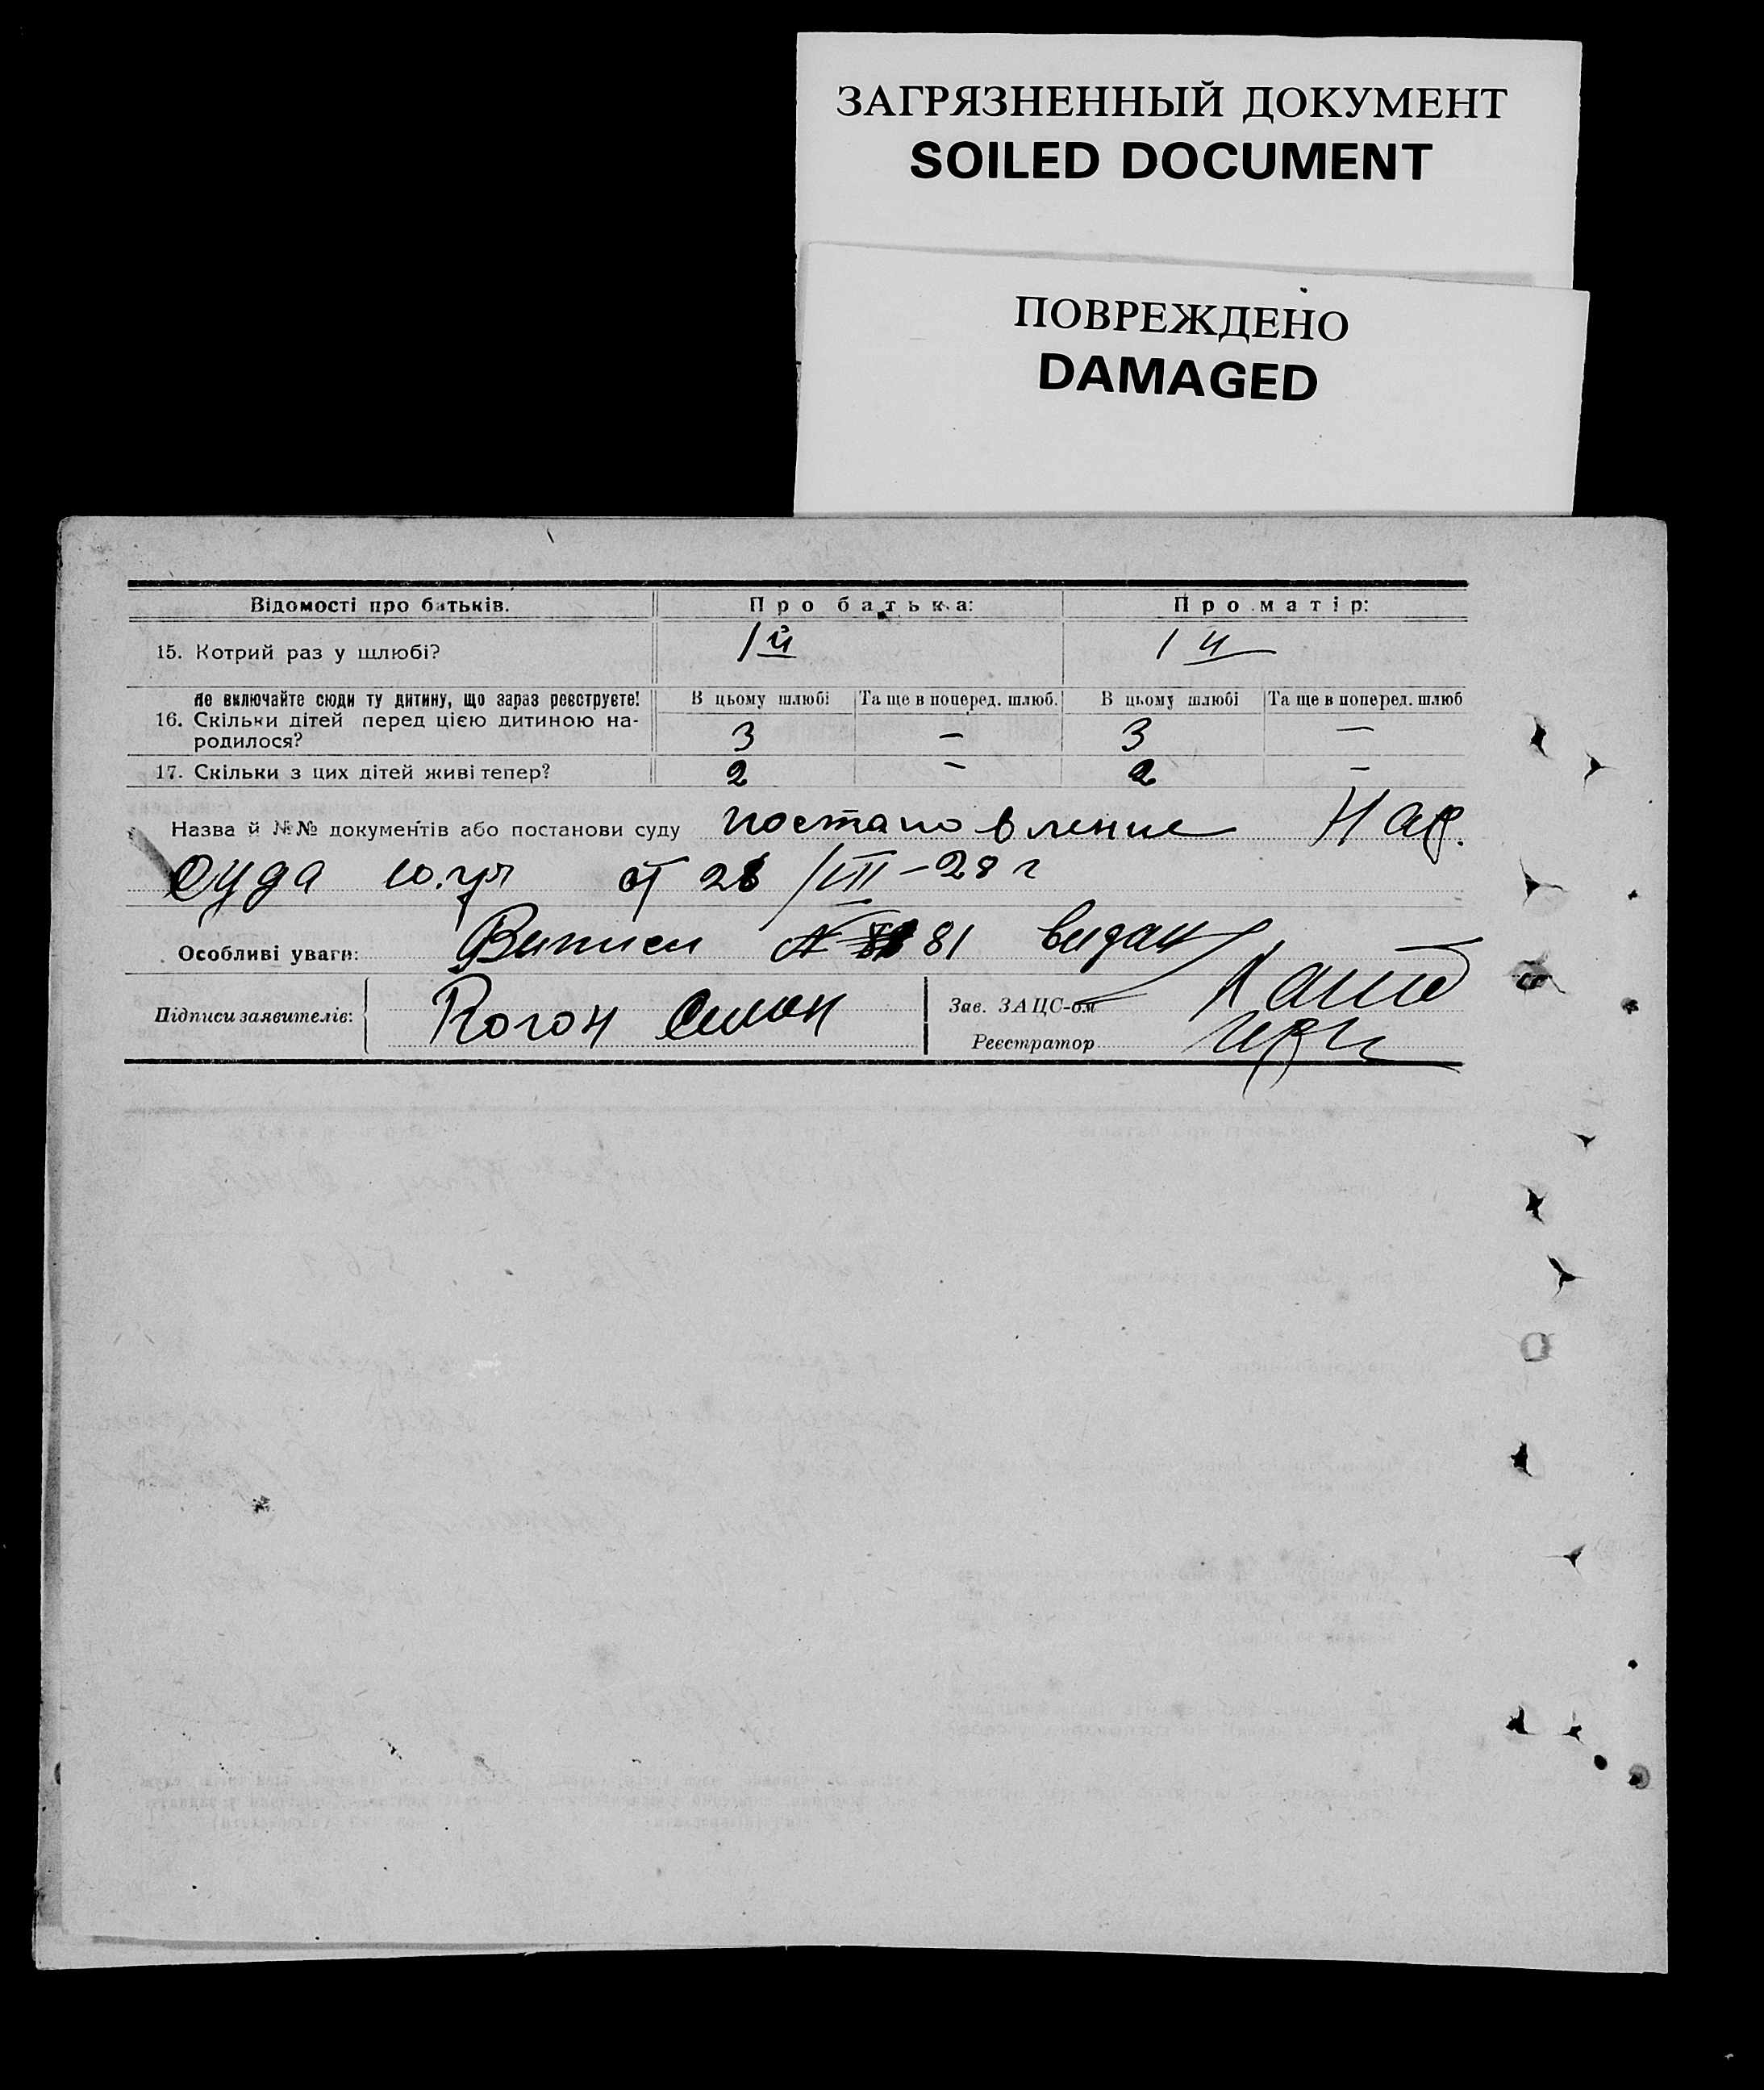 ЗАГРЯЗНЕННЫЙ ДОКУМЕНТ
SOILED DOCUMENT
ПОВРЕЖДЕНО
DAMAGED
Відомості про батьків. Про батька: Про матір:
15. Котрий раз у шлюбі? 1й 1й
Не включайте сюди ту дитину, що зараз реєструєте! В цьому шлюбі Та ще в поперед. шлюб. В цьому шлюбі Та ще в поперед. шлюб
16. Скільки дітей перед цією дитиною на-
родилося? 3 — 3 —
17. Скільки з цих дітей живі тепер? 2 — 2 —
Назва й №№ документів або постанови суду постановление Нар.
суда 10.уч от 28/VIII-28 г
Особливі уваги: Выписи № 81 видан
Підписи заявителів: Коган Зав. ЗАЦС-ом
Реєстратор